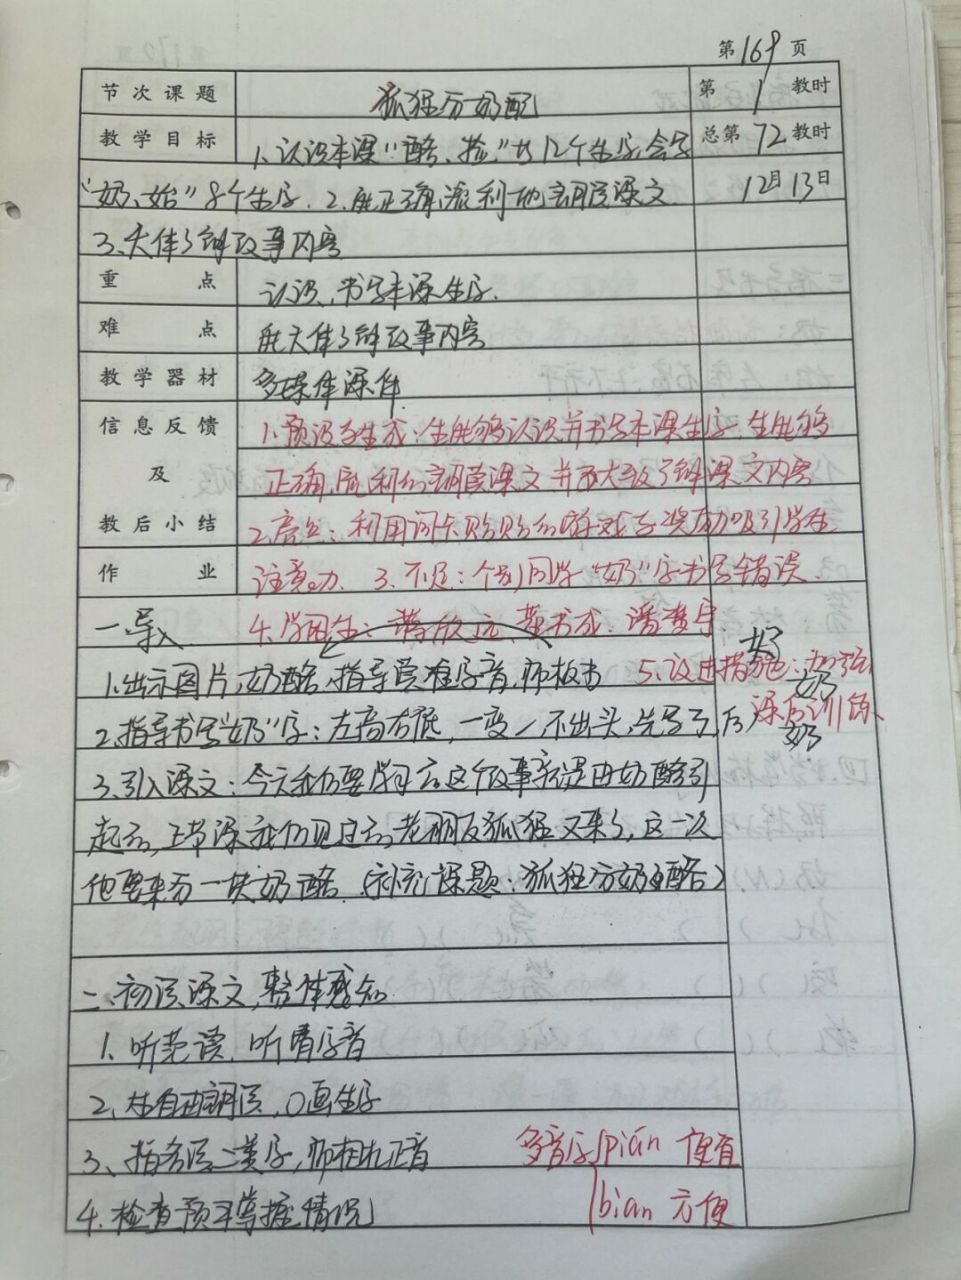 第169页
节次课题 狐狸分奶酪 第1教时
教学目标 1、认识本课“酪、捡”共12个生字,会写 总第72教时
“奶、始”8个生字. 2、能正确,流利地朗读课文 12月13日
3、大体了解故事内容
重点 认识,书写本课生字.
难点 能大体了解故事内容
教学器材 多媒体课件
信息反馈 1.预设与生成:生能够认识并书写本课生字 生能够
及 正确,流利的朗读课文 并大致了解课文内容
教后小结 2.亮点:利用词卡贴贴的游戏与奖励吸引学生
作业 注意力 3.不足:个别同学“奶”字书写错误.
一、导入 4.学困生:
1、出示图片,奶酪,指导读准字音,师板书 5.改进措施:加强
课后训练、
奶
奶
2、指导书写“奶”字:左高右低,一变㇀不出头,先写 后丿
3、引入课文:今天我们要学习的这个故事就是由奶酪引
起的,上节课我们见过的老朋友狐狸又来了,这一次
他要来分一块奶酪.(补充课题:狐狸分奶酪)
二、初读课文,整体感知
1、听范读,听清字音
2、生自由朗读,○画生字
3、指名读二类字,师相机正音 多音字 pián 便宜
4、检查预习掌握情况 biàn 方便